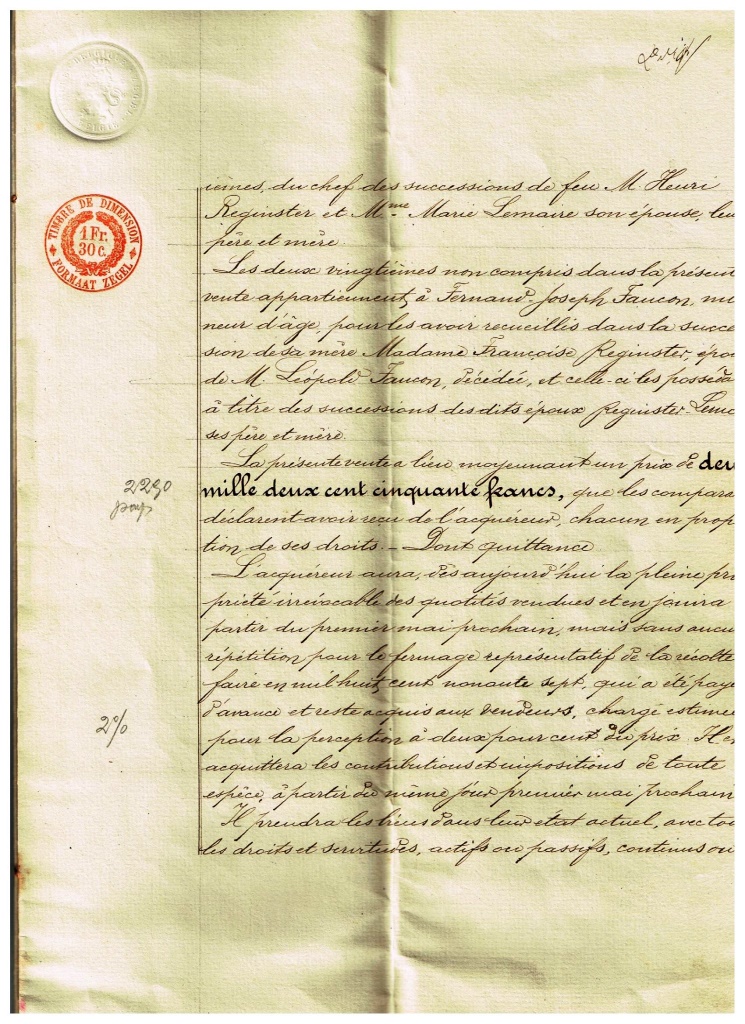 TIMBRE DE DIMENSION
1 Fr.
30 c.
FORMAAT ZEGEL
ièmes, du chef des successions de feu M. Henri
Reginster et Mme Marie Lemaire son épouse, leu
père et mère.
Les deux vingtièmes non compris dans la présent
vente appartiennent à Fernand-Joseph Faucon, mi
neur d'âge, pour les avoir recueillis dans la succe
sion de sa mère Madame Françoise Reginster, épou
de M. Léopold Faucon, décédée, et celle-ci les posséda
à titre des successions des dits époux Reginster-Lema
ses père et mère.
La présente vente a lieu moyennant un prix de deu
mille deux cent cinquante francs, que les compara
2250
déclarent avoir reçu de l'acquéreur, chacun en prop
tion de ses droits. — Dont quittance
L'acquéreur aura, dès aujourd'hui la pleine pro
priété irrévocable des quotités vendues et en jouira
partir du premier mai prochain, mais sans aucu
répétition pour le fermage représentatif de la récolte
faire en mil huit cent nonante sept, qui a été payé
d'avance et reste acquis aux vendeurs, charge estimée
2%
pour la perception à deux pour cent du prix. Il en
acquittera les contributions et impositions de toute
espèce, à partir du même jour premier mai prochain
Il prendra les biens dans leur état actuel, avec tou
les droits et servitudes, actifs ou passifs, continus ou